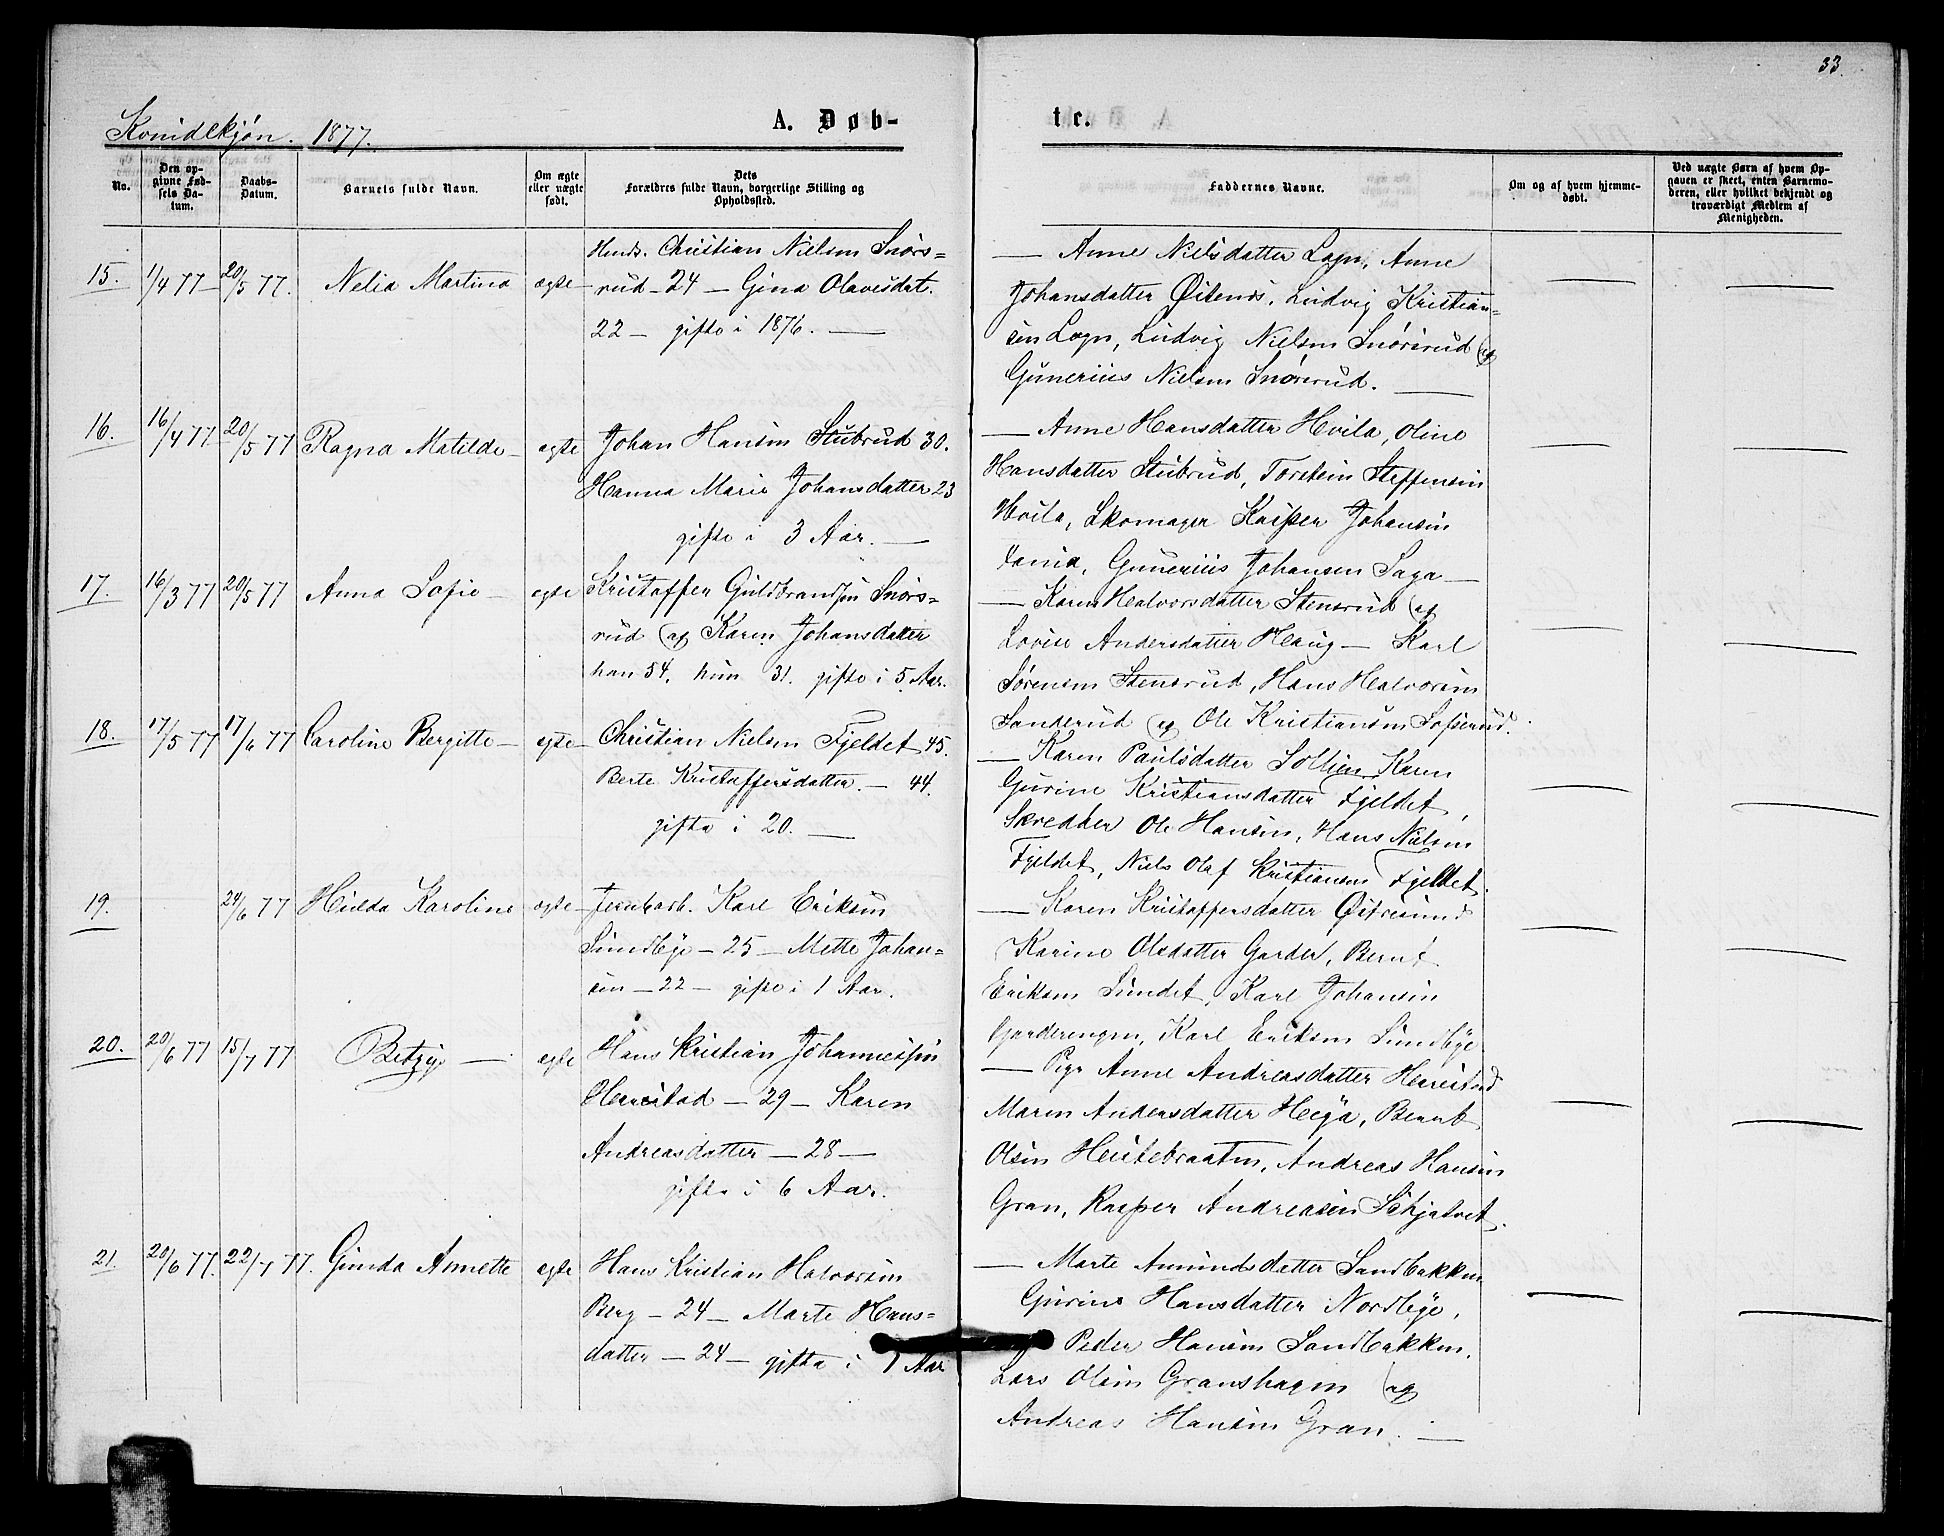 33.
Kvindekjøn. 1877.
A. Døb-
te.
No.
Den op-
givne Fød-
sels Da-
tum.
Daabs-
Datum.
Barnets fulde Navn.
Om ægte
eller uægte
født.
Dets
Forældres fulde Navn, borgerlige Stilling og
Opholdssted.
Faddernes Navne.
Om og af hvem hjemme-
døbt.
Ved uægte Børn af hvem Op-
gaven er skeet, enten Barnemo-
deren, eller hvilket bekjendt og
troværdigt Medlem af
Menigheden.
15. 1/4 77 20/5 77. Nelia Martina ægte
Christian Nielsen Snørs=
rud - 24 — Gina Olavesdat.
22 — gifte i 1876. —
— Anne Nielsdatter Logn, Anne
Johansdatter Østenes, Ludvig Kristian=
sen Logn, Ludvig Nielsen Snørsrud og
Gunerius Nielsen Snørsrud. —
16. 16/4 77 20/5 77 Ragna Matilde — ægte
Johan Hansen Stubrud 30.
Hanna Marie Johansdatter 23
gifte i 3 Aar. —
— Anne Hansdatter Hvila, Oline
Hansdatter Stubrud, Torstein Steffensen
Hvila, Skomager Kasper Johansen
Gunerius Johansen Saga —
17. 16/3 77 20/5 77 Anna Sofie — ægte
Kristoffer Guldbrandsen Snørs=
rud og Karen Johansdatter
han 54, hun 31. gifte i 5 Aar.
— Karen Halvorsdatter Stensrud og
Lovise Andersdatter Haug — Karl
Sørensen Stensrud, Hans Halvorsen
Sanderud og Ole Kristiansen
18. 17/5 77 17/6 77 Caroline Bergitte — ægte
Christian Nielsen Fjeldet 45.
Berte Kristoffersdatter. — 44.
gifte i 20. —
— Karen Paulsdatter Sollien Karen
Gurine Kristiansdatter Fjeldet,
Skredder Ole Hansen, Hans Nielsen
Fjeldet, Niels Olaf Kristiansen Fjeldet.
19. 24/6 77 Hilda Karoline ægte
Jernbarb. Karl Eriksen
Sundbye — 25 — Mette Johan=
sen — 22 — gifte i 1 Aar.
— Karen Kristoffersdatter
Karine Olsdatter Garder, Bernt
Eriksen Sundet, Karl Johansen
Garderengen, Karl Eriksen Sundbye
20. 20/6 77 15/7 77 Betzy — ægte
Hans Kristian Johannessen
Herrestad — 29 — Karen
Andreasdatter — 28 —
gifte i 6 Aar.
— Pige Anne Andreasdatter Herrestad
Maren Andersdatter Hega, Bernt
Olsen Andreas Hansen
Gran, Kasper Andreasen
21. 20/6 77. 22/7 77. Gunda Annette ægte
Hans Kristian Halvorsen
Berg — 24 — Marte Hans=
datter — 24 — gifte i 1 Aar
— Marte Amundsdatter Sandbakken
Gurine Hansdatter Nordbye,
Peder Hansen Sandbakken,
Lars Olsen Granshagen og
Andreas Hansen Gran. —